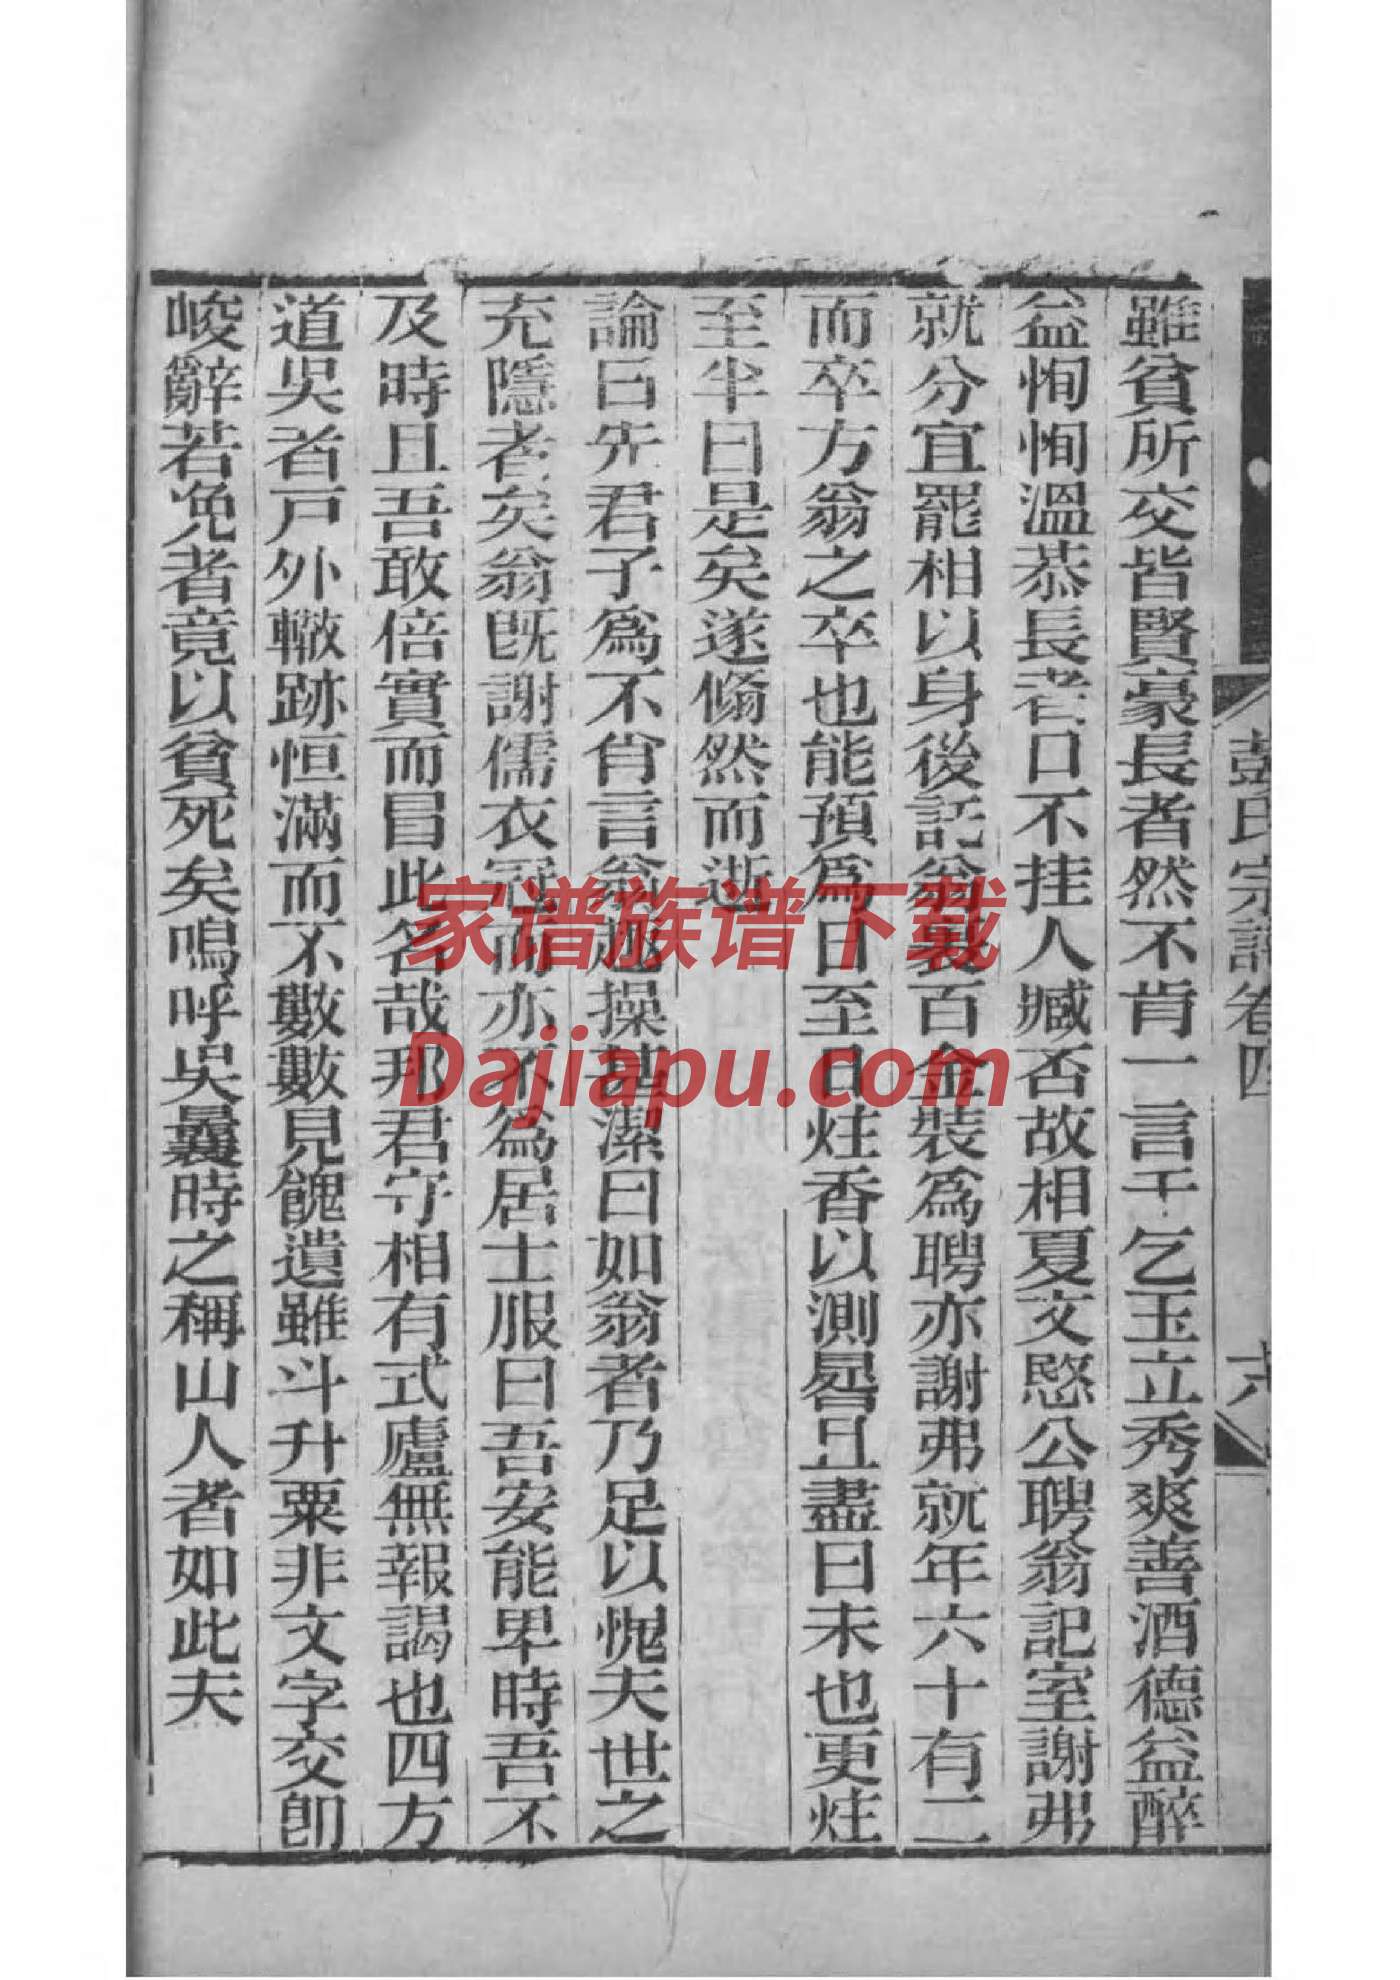 彭氏宗譜卷四
十六
雖貧所交皆賢豪長者然不肯一言干乞玉立秀爽善酒德益醉
益恂恂溫恭長者口不挂人臧否故相夏文愍公聘翁記室謝弗
就分宜罷相以身後託翁裹百金裝爲聘亦謝弗就年六十有二
而卒方翁之卒也能預爲日至日炷香以測晷且盡曰未也更炷
至半曰是矣遂翛然而逝
論曰先君子爲不肖言翁越操甚潔曰如翁者乃足以愧夫世之
充隱者矣翁既謝儒衣冠而亦不爲居士服曰吾安能卑時吾不
及時且吾敢倍實而冒此名哉邦君守相有式廬無報謁也四方
道吳者戸外轍跡恒滿而不數數見餽遺雖斗升粟非文字交卽
峻辭若免者竟以貧死矣嗚呼吳曩時之稱山人者如此夫
家谱族谱下载
Dajiapu.com